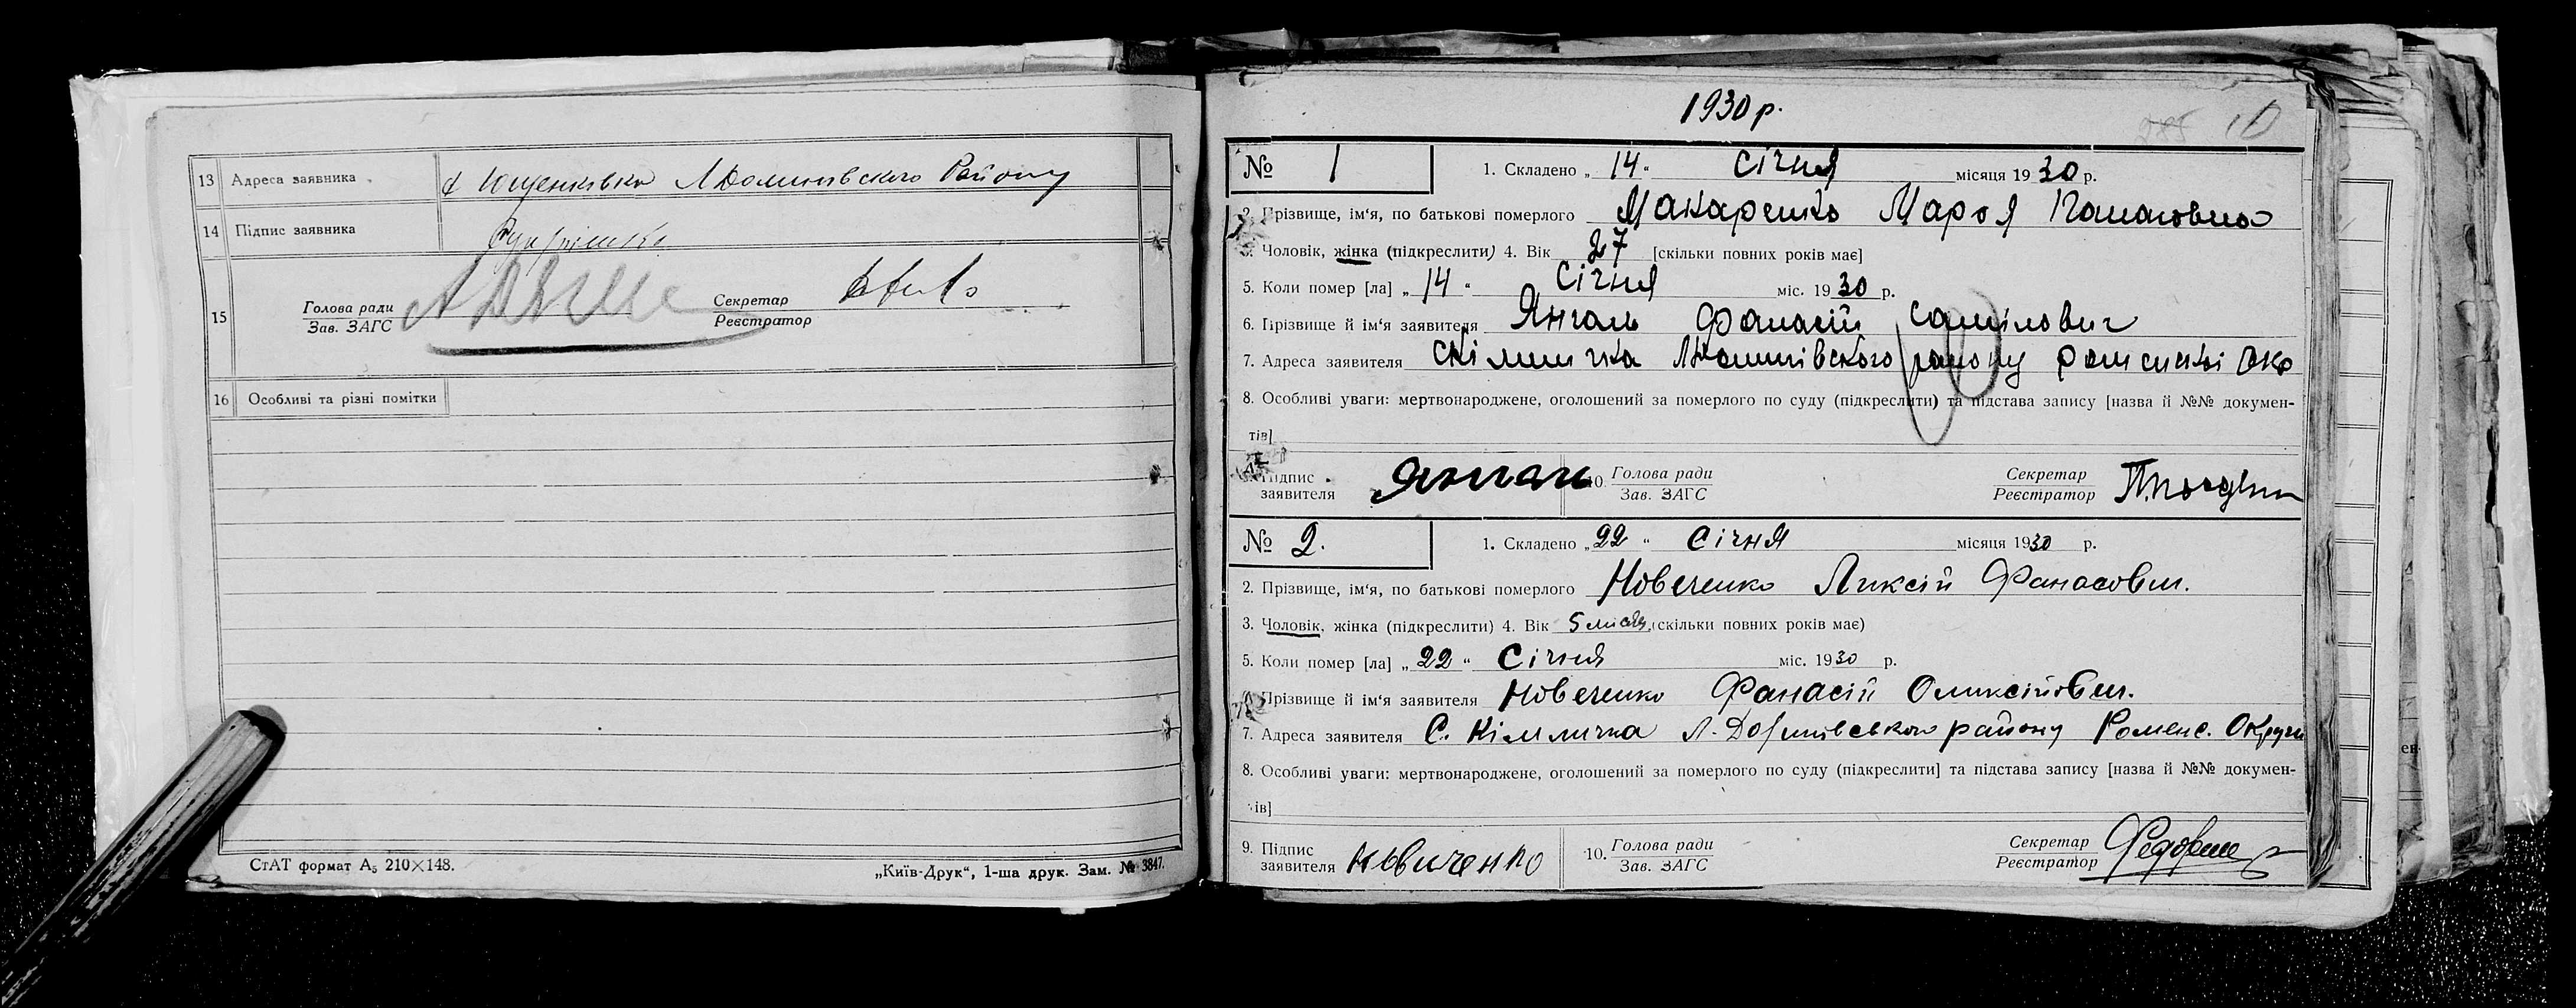 13 Адреса заявника с Ющенківка ЛДолинівского Району
14 Підпис заявника
15 Голова ради Зав. ЗАГС Секретар Реєстратор
16 Особливі та різні помітки
СтАТ формат А₅ 210×148. „Київ-Друк“, 1-ша друк. Зам. № 3847.
1930 р.
№ 1 1. Складено „14“ Січня місяця 1930 р.
2. Прізвище, ім‘я, по батькові померлого Макаренко Марія Панасовна
3. Чоловік, жінка (підкреслити) 4. Вік 27 [скільки повних років має]
5. Коли помер [ла] „14“ Січня міс. 1930 р.
6. Прізвище й ім‘я заявителя Янгаль Фанасій Самілович
7. Адреса заявителя району
8. Особливі уваги: мертвонароджене, оголошений за померлого по суду (підкреслити) та підстава запису [назва й №№ докумен-
тів]
Підпис заявителя 10. Голова ради Зав. ЗАГС Секретар Реєстратор
№ 2. 1. Складено „22“ Січня місяця 1930 р.
2. Прізвище, ім‘я, по батькові померлого Новеченко Ликсій Фанасович.
3. Чоловік, жінка (підкреслити) 4. Вік 5 місяц. (скільки повних років має)
5. Коли помер [ла] „22“ Січня міс. 1930 р.
Прізвище й ім‘я заявителя Новеченко Фанасій Оликсійович.
7. Адреса заявителя С. Кімличка району Роменс. Округи
8. Особливі уваги: мертвонароджене, оголошений за померлого по суду (підкреслити] та підстава запису [назва й №№ докумен-
ів]
9. Підпис заявителя Новиченко 10. Голова ради Зав. ЗАГС Секретар Реєстратор